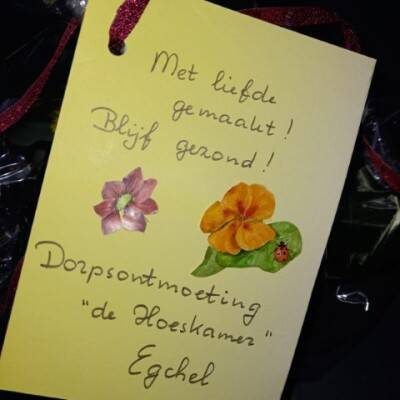 Met liefde
gemaakt!
Blijf gezond!
Dorpsontmoeting
"de Hoeskamer"
Egchel